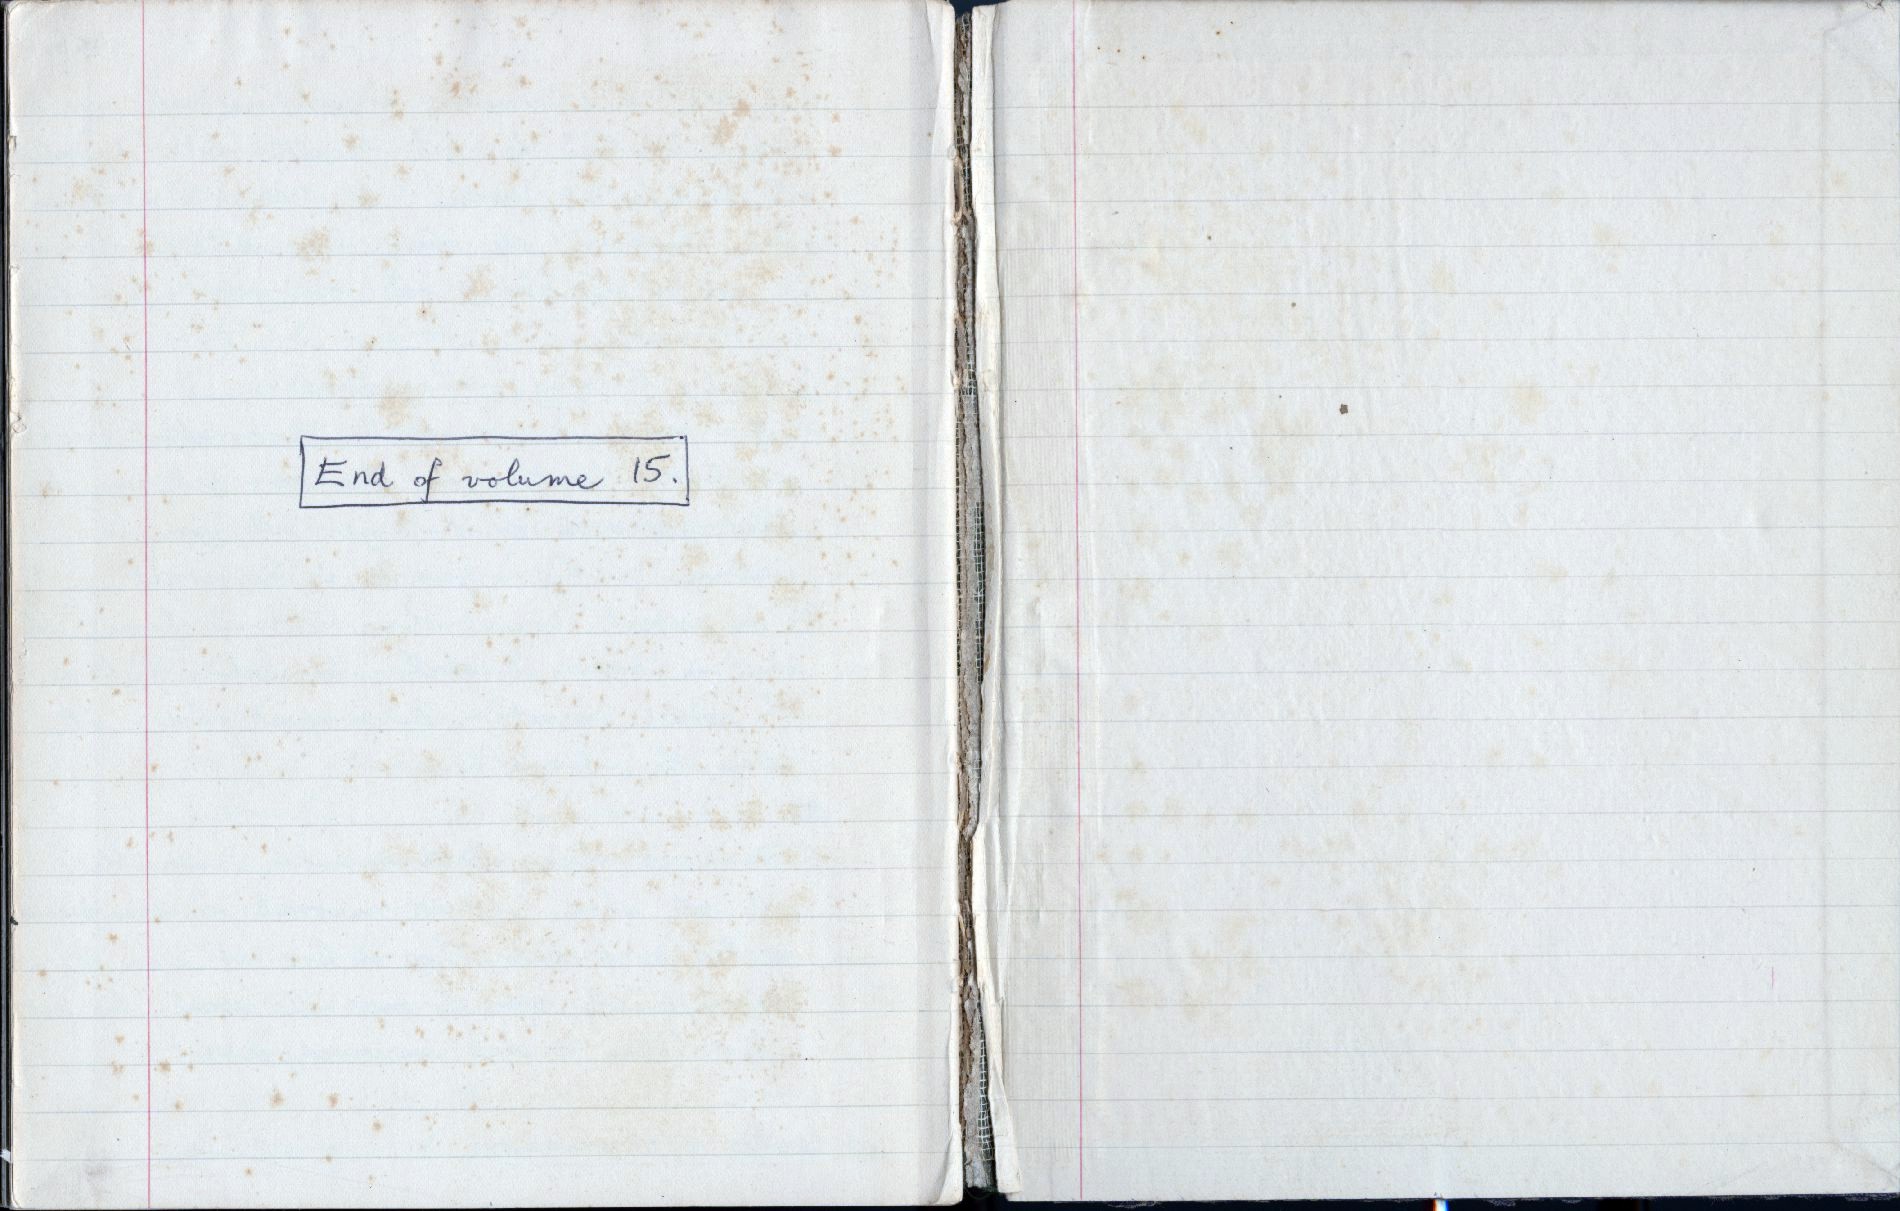 End of volume 15.